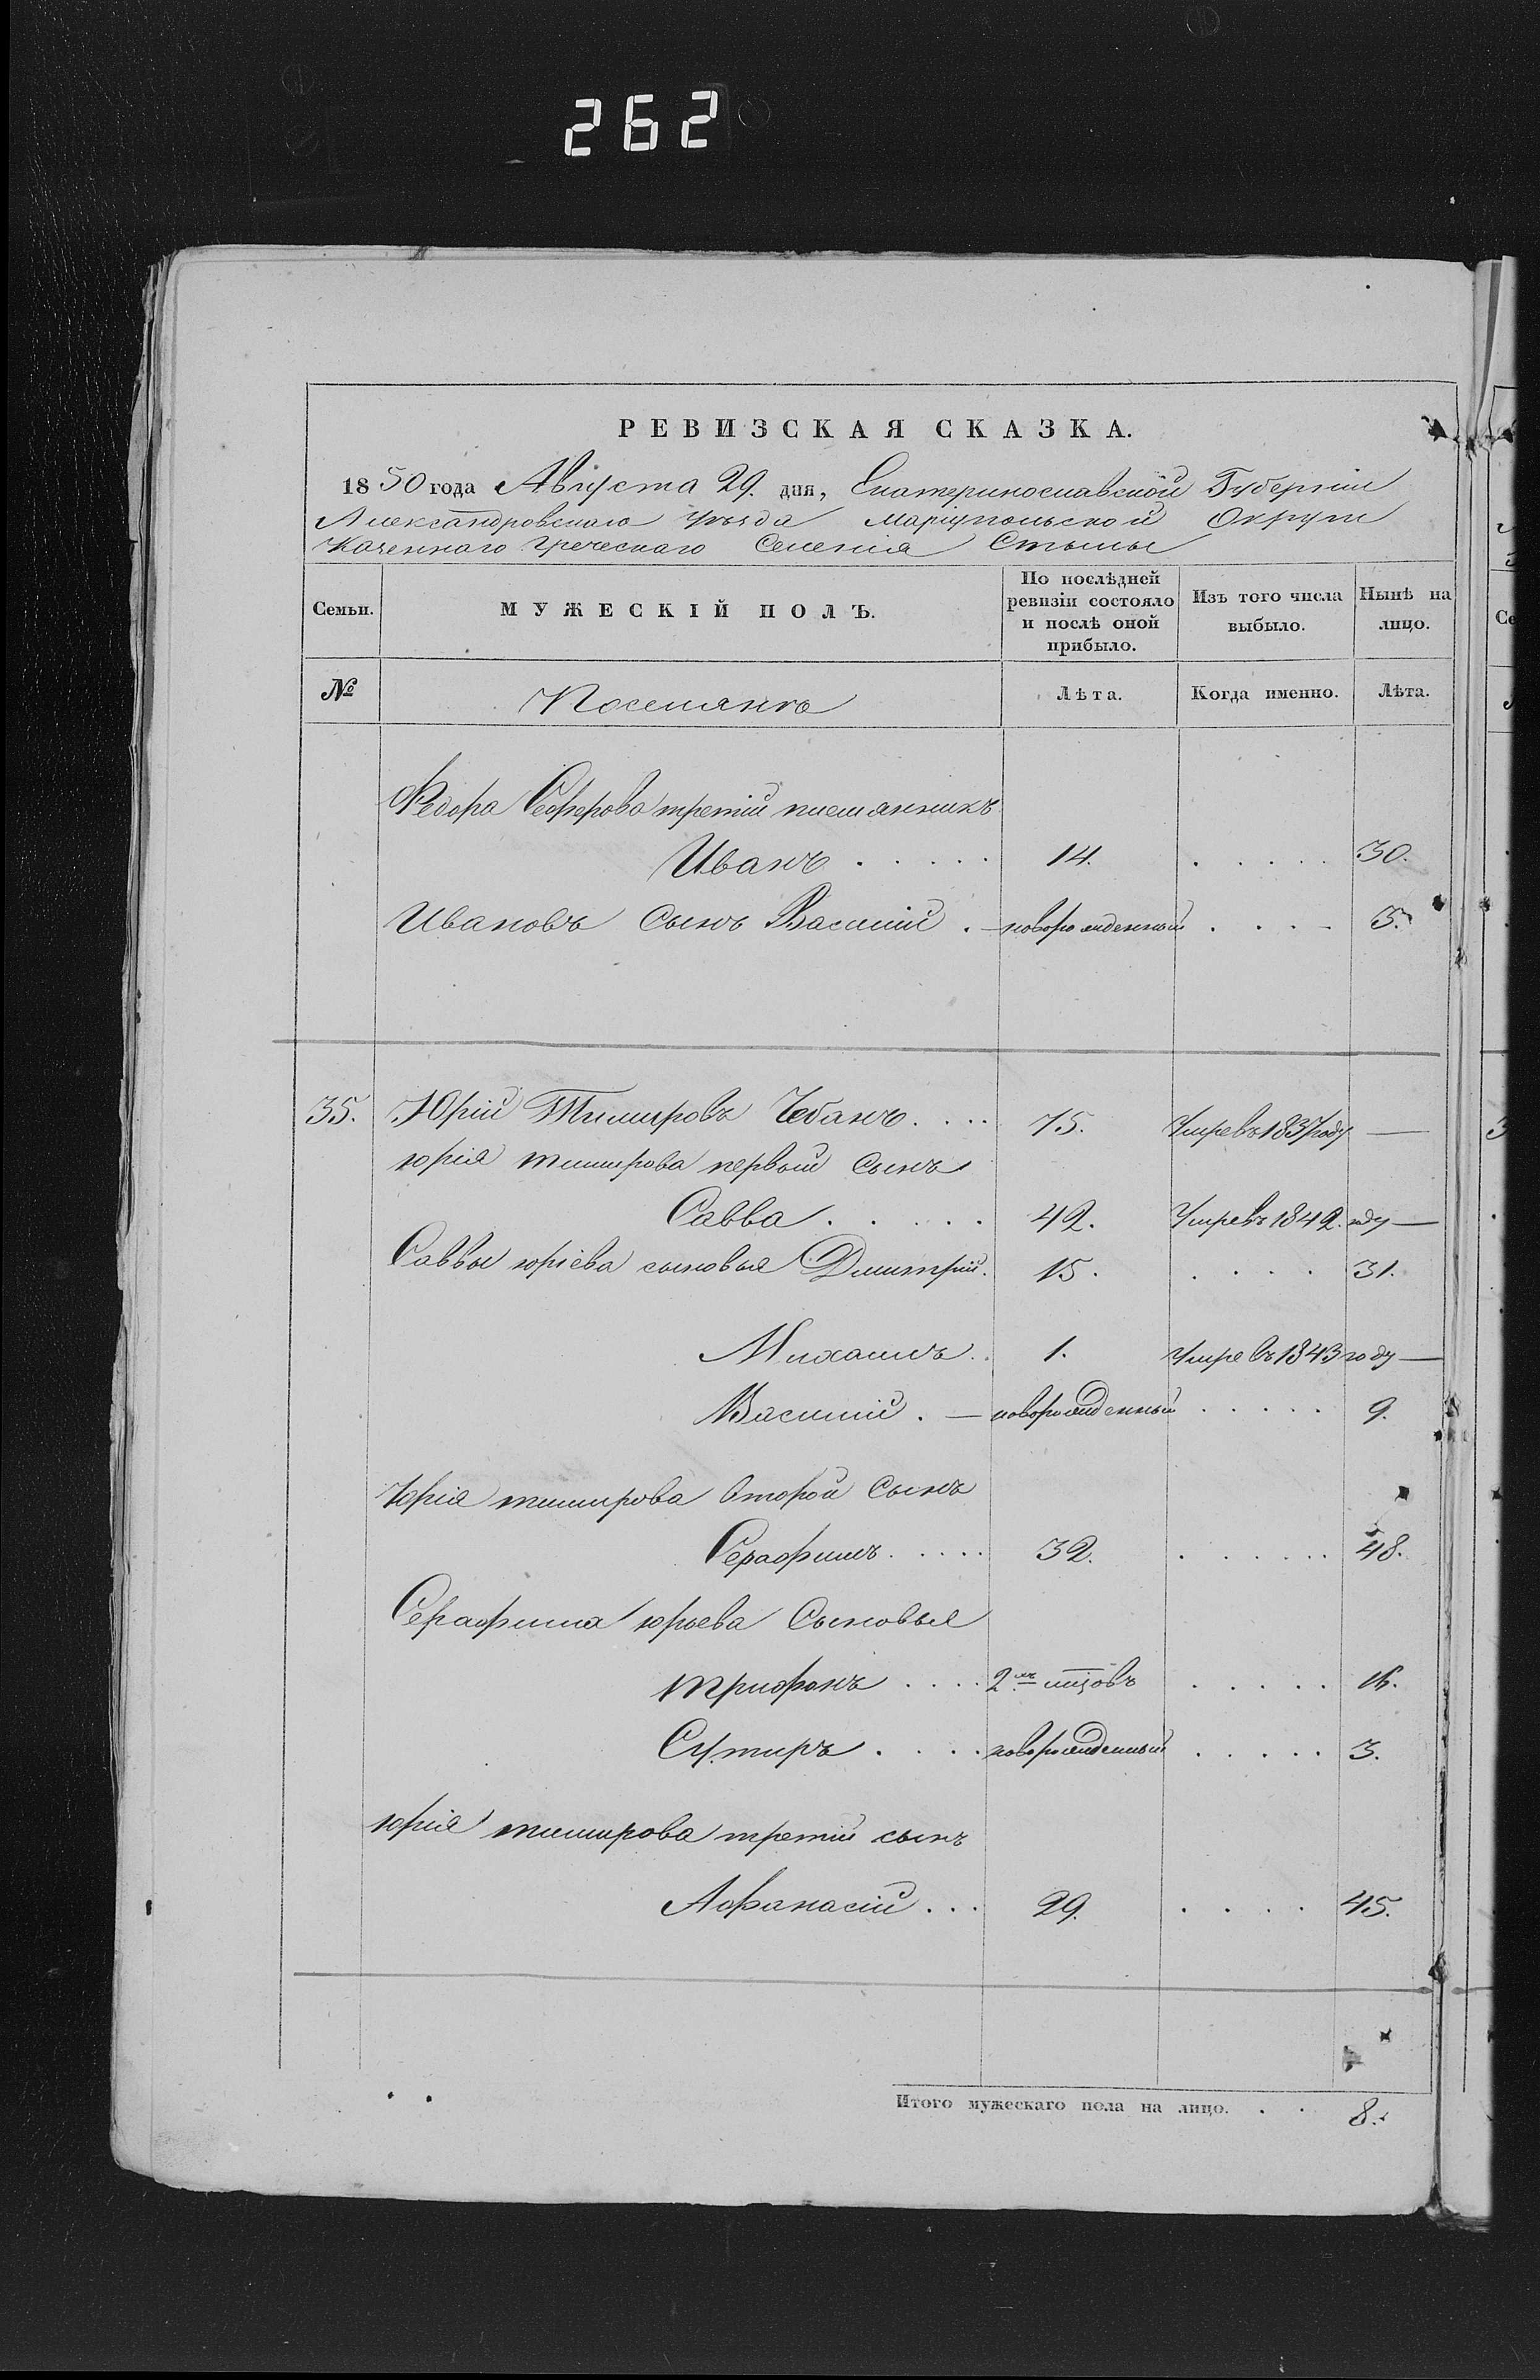 262
РЕВИЗСКАЯ СКАЗКА.
1850 года Августа 29. дня, Екатеринославской Губерніи
Александровскаго уѣзда Маріупольской Округи
Казеннаго Греческаго Селенія Стылы
Семьи. МУЖЕСКІЙ ПОЛЪ. По послѣдней ревизіи состояло и послѣ оной прибыло. Изъ того числа выбыло. Нынѣ на лицо.
№ Поселянъ Лѣта. Когда именно. Лѣта.
Федора Сеферова третій племянникъ
Иванъ . . . . . 14. . . . . . 30.
Ивановъ Сынъ Василій . — новорожденный . . . . 5.
35. Юрій Тимировъ Чебанъ . . . . 75. Умре въ 1837 году —
юрія тимирова первый Сынъ
Савва . . . . . 42. Умре въ 1842. году —
Саввы юріева сыновья Дмитрій. 15. . . . . 31.
Михаилъ . . 1. умре въ 1843 году —
Василій . — новорожденный . . . . . 9.
Юрія тимирова второй Сынъ
Серафимъ . . . . . 32. . . . . . . 48.
Серафима юрьева Сыновья
трифонъ . . . . 2хъ мцовъ . . . . . 16.
Сутиръ . . . . новорожденный . . . . . 3.
юрія тимирова третій сынъ
Афанасій . . . 29. . . . . 45.
Итого мужескаго пола на лицо. . . 8.